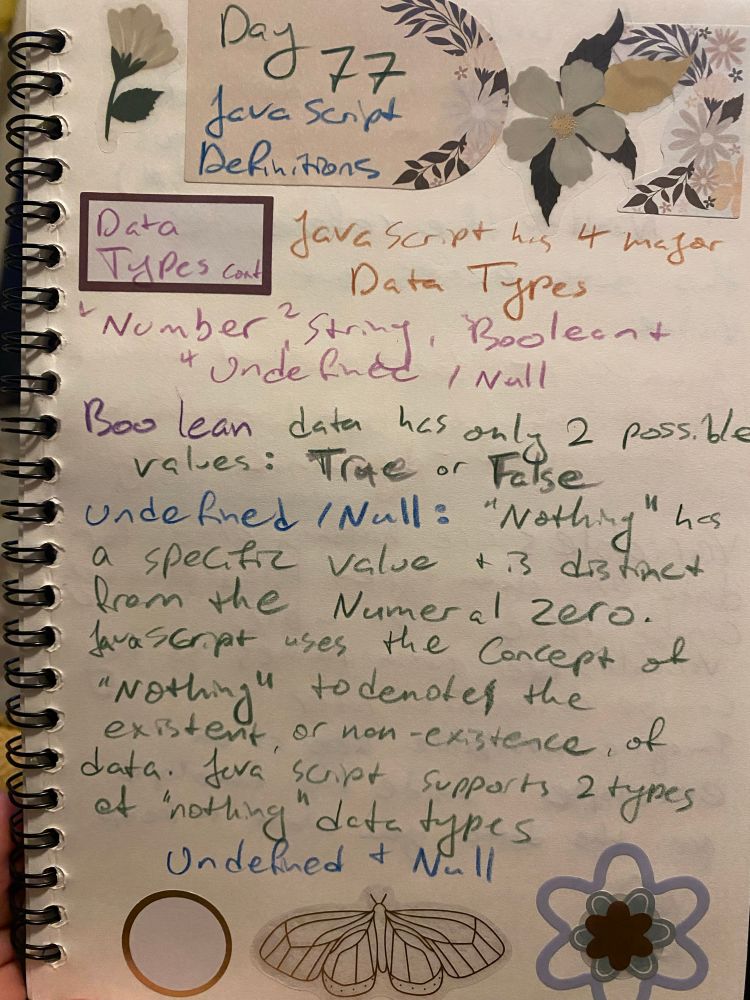 Day
77
JavaScript
Definitions
Data
Types cont
JavaScript has 4 major
Data Types
1 Number, 2 String, 3 Boolean +
4 Undefined / Null
Boolean data has only 2 possible
values: True or False
Undefined / Null: "Nothing" has
a specific value + is distinct
from the Numeral zero.
JavaScript uses the concept of
"Nothing" to denotes the
existent, or non-existence, of
data. Java script supports 2 types
of "nothing" data types
Undefined + Null